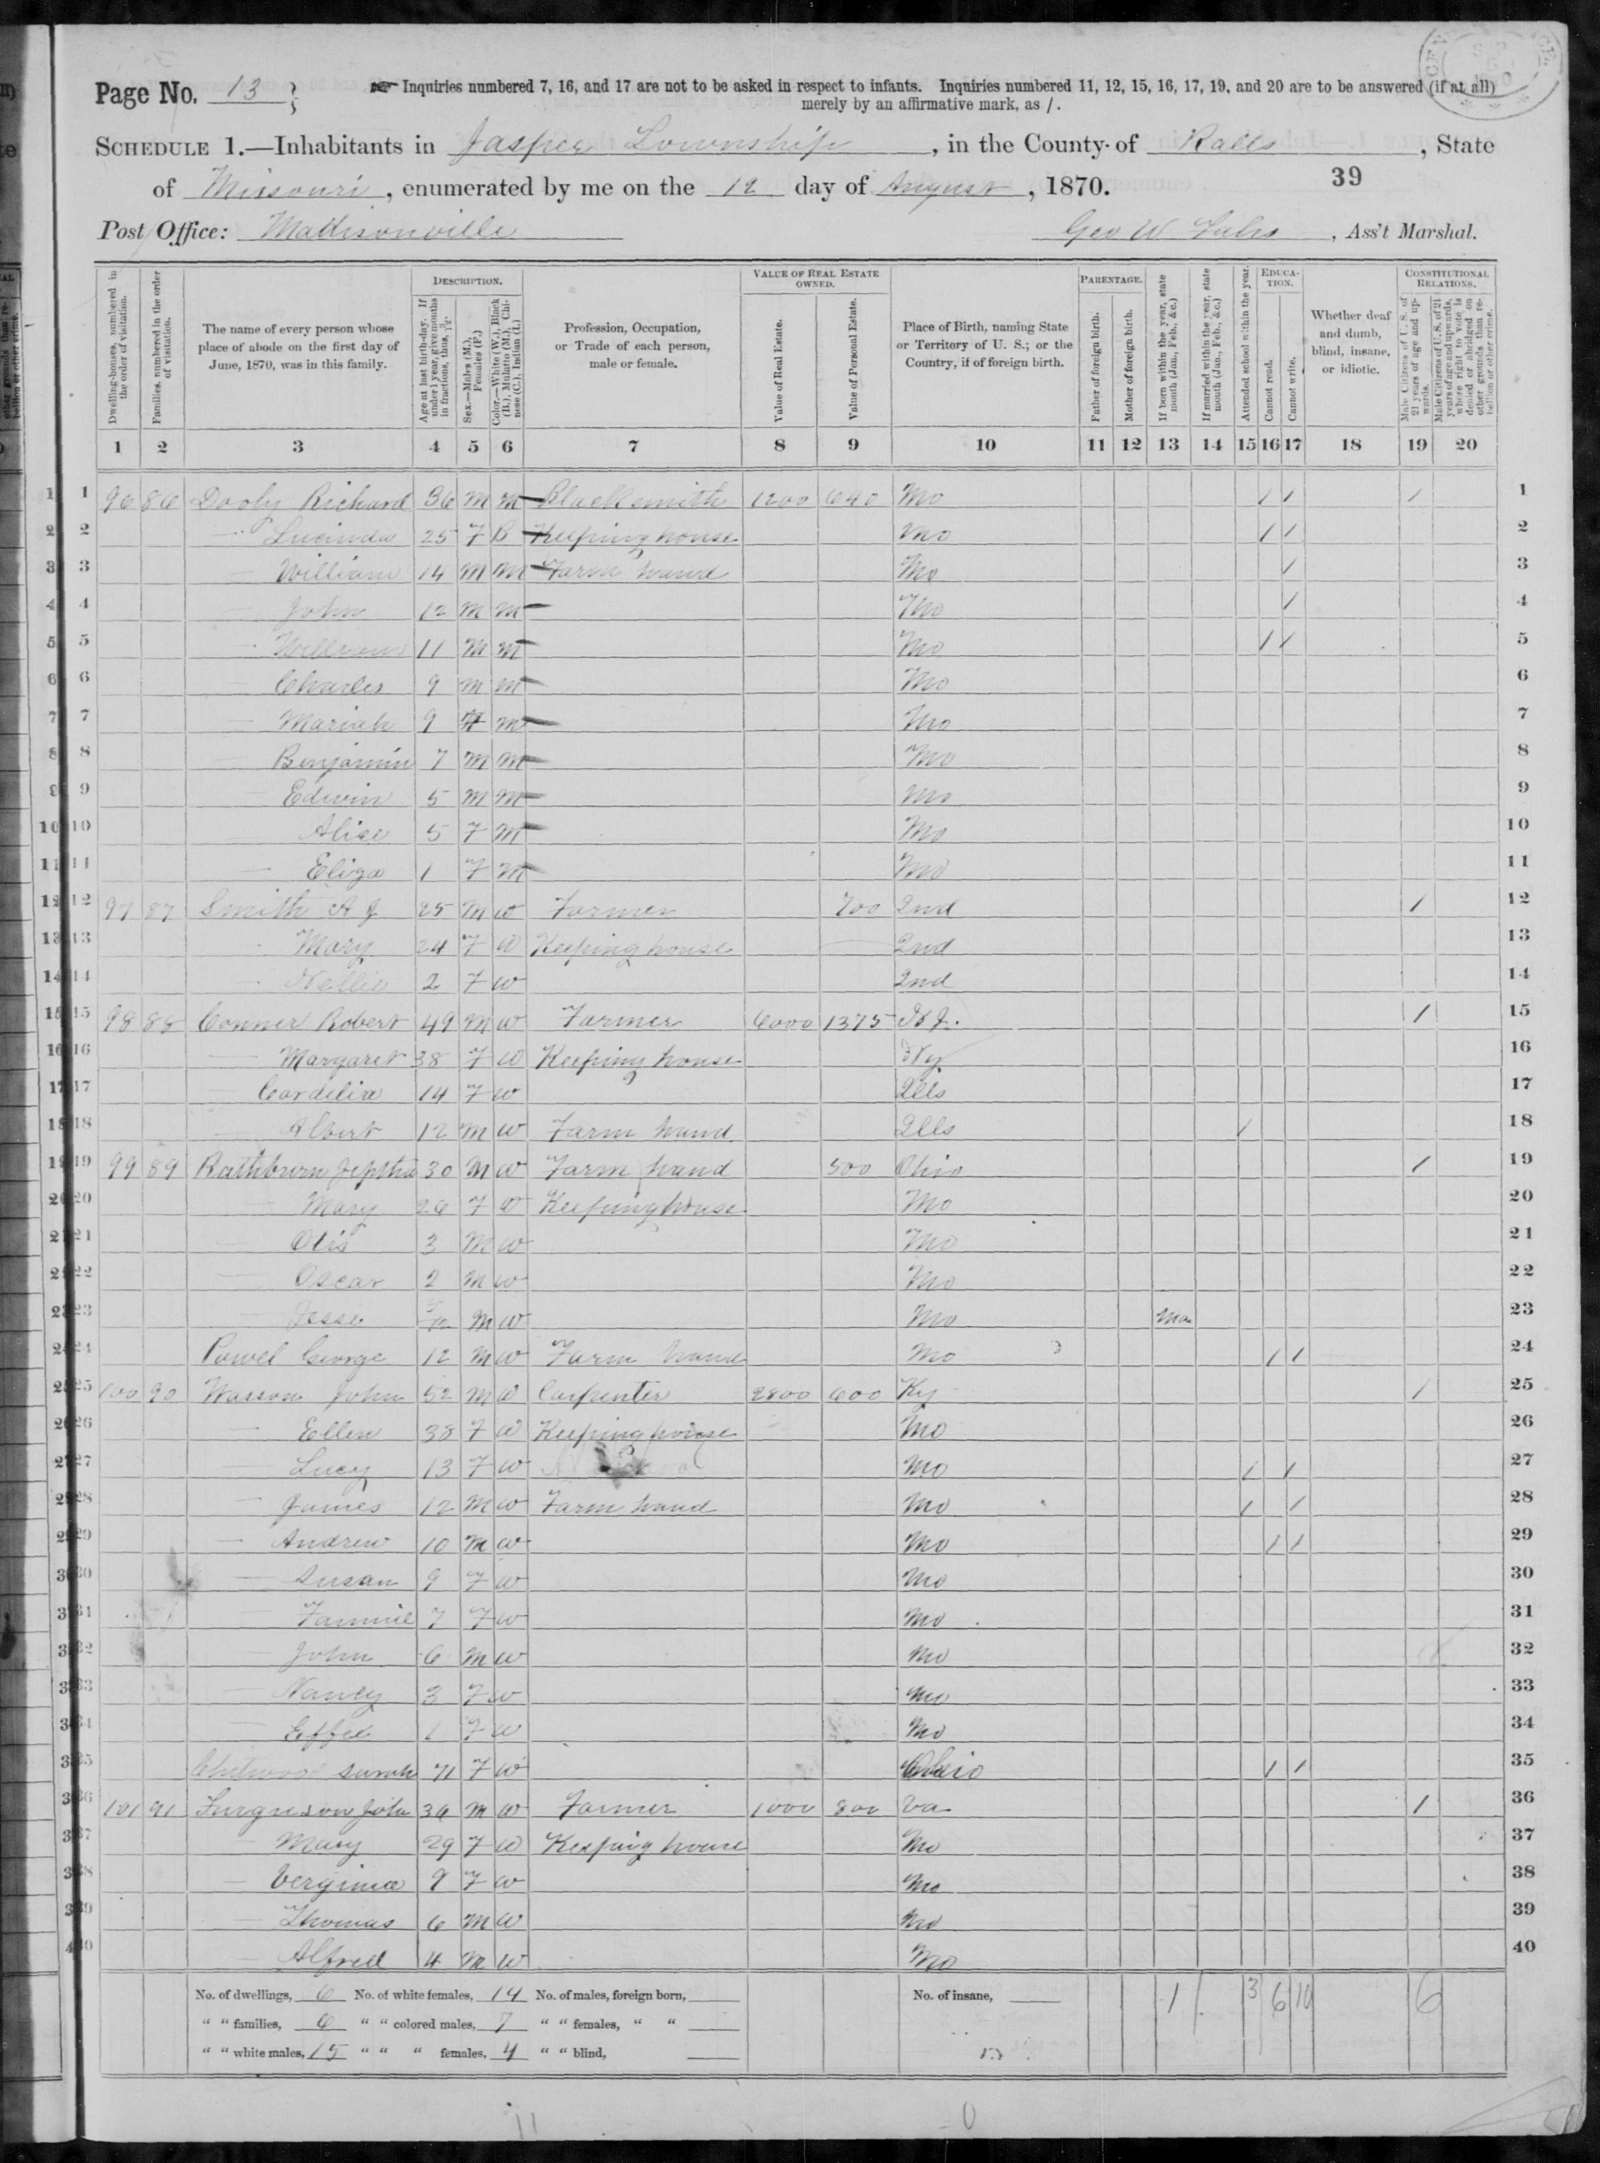 Page No. 13 } Inquiries numbered 7, 16, and 17 are not to be asked in respect to infants. Inquiries numbered 11, 12, 15, 16, 17, 19, and 20 are to be answered (if at all)
merely by an affirmative mark, as /.
SCHEDULE 1.—Inhabitants in Jasper Township, in the County of Ralls, State
of Missouri, enumerated by me on the 12 day of August, 1870. 39
Post Office: Madisonville Geo W , Ass't Marshal.
DESCRIPTION. VALUE OF REAL ESTATE OWNED. PARENTAGE. EDUCATION. CONSTITUTIONAL RELATIONS.
Dwelling-houses, numbered in the order of visitation.
Families, numbered in the order of visitation.
The name of every person whose place of abode on the first day of June, 1870, was in this family.
Age at last birth-day. If under 1 year, give months in fractions, thus, 3/12
Sex.—Males (M.), Females (F.)
Color.—White (W.), Black (B.), Mulatto (M.), Chinese (C.), Indian (I.)
Profession, Occupation, or Trade of each person, male or female.
Value of Real Estate.
Value of Personal Estate.
Place of Birth, naming State or Territory of U. S.; or the Country, if of foreign birth.
Father of foreign birth.
Mother of foreign birth.
If born within the year, state month (Jan., Feb., &c.)
If married within the year, state month (Jan., Feb., &c.)
Attended school within the year.
Cannot read.
Cannot write.
Whether deaf and dumb, blind, insane, or idiotic.
Male Citizens of U. S. of 21 years of age and upwards.
Male Citizens of U. S. of 21 years of age and upwards, where right to vote is denied or abridged on other grounds than rebellion or other crime.
1 2 3 4 5 6 7 8 9 10 11 12 13 14 15 16 17 18 19 20
1 96 86 Dooly Richard 36 M M Blacksmith 1200 640 Mo / / / 1
2 — Lucinda 25 F B Keeping house Mo / / 2
3 — William 14 M M Farm hand Mo / 3
4 — John 12 M M Mo / 4
5 — 11 M M Mo / / 5
6 — Charles 9 M M Mo 6
7 — Mariah 9 F M Mo 7
8 — Benjamin 7 M M Mo 8
9 — Edwin 5 M M Mo 9
10 Alice 5 F M Mo 10
11 — Eliza 1 F M Mo 11
12 97 87 Smith A J 25 M W Farmer 700 Ind / 12
13 — Mary 24 F W Keeping house Ind 13
14 — Nellie 2 F W Ind 14
15 98 88 Conner Robert 49 M W Farmer 6000 1375 N J. / 15
16 — Margaret 38 F W Keeping house Ky 16
17 — Cordelia 14 F W Ills 17
18 — Albert 12 M W Farm hand Ills / 18
19 99 89 Rathburn Jeptha 30 M W Farm hand 500 Ohio / 19
20 — Mary 26 F W Keeping house Mo 20
21 — Otis 3 M W Mo 21
22 — Oscar 2 M W Mo 22
23 — Jesse M W Mo Mar 23
24 Powel George 12 M W Farm hand Mo / / 24
25 100 90 Wasson John 52 M W Carpenter 2800 600 Ky / 25
26 — Ellen 38 F W Keeping house Mo 26
27 — Lucy 13 F W Mo / / 27
28 — James 12 M W Farm hand Mo / / 28
29 — Andrew 10 M W Mo / / 29
30 — Susan 9 F W Mo 30
31 — Fannie 7 F W Mo 31
32 — John 6 M W Mo 32
33 — Nancy 3 F W Mo 33
34 — Effee 1 F W Mo 34
35 Sarah 71 F W Ohio / / 35
36 101 91 Furguson John 36 M W Farmer 1000 800 Va / 36
37 — Mary 29 F W Keeping house Mo 37
38 — Verginia 9 F W Mo 38
39 — Thomas 6 M W Mo 39
40 — Alfred 4 M W Mo 40
No. of dwellings, 6 No. of white females, 14 No. of males, foreign born, No. of insane, 1 3 6 10 6
" " families, 6 " " colored males, 7 " " females, " "
" " white males, 15 " " " females, 4 " " blind,